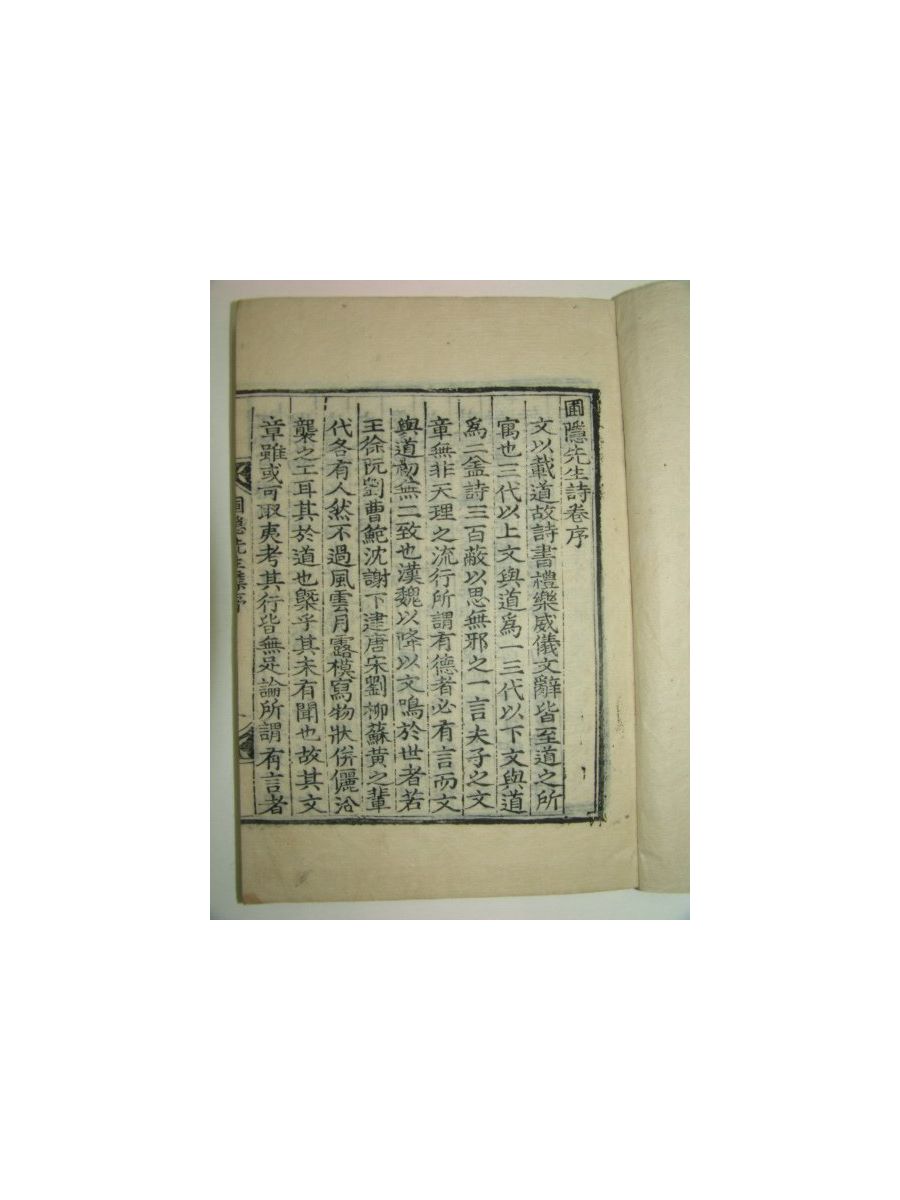 圃隱先生詩卷序
文以載道故詩書禮樂威儀文辭皆至道之所
寓也三代以上文與道爲一三代以下文與道
爲二盖詩三百蔽以思無邪之一言夫子之文
章無非天理之流行所謂有德者必有言而文
與道初無二致也漢魏以降以文鳴於世者若
王徐阮劉曹鮑沈謝下逮唐宋劉柳蘇黃之輩
代各有人然不過風雲月露模寫物狀倂儷洽
襲之工耳其於道也槩乎其未有聞也故其文
章雖或可取夷考其行皆無足論所謂有言者
圃隱先生集序